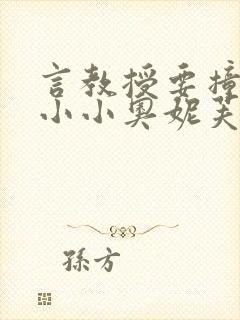 言教授要撞
小小奥妮芙
孫方